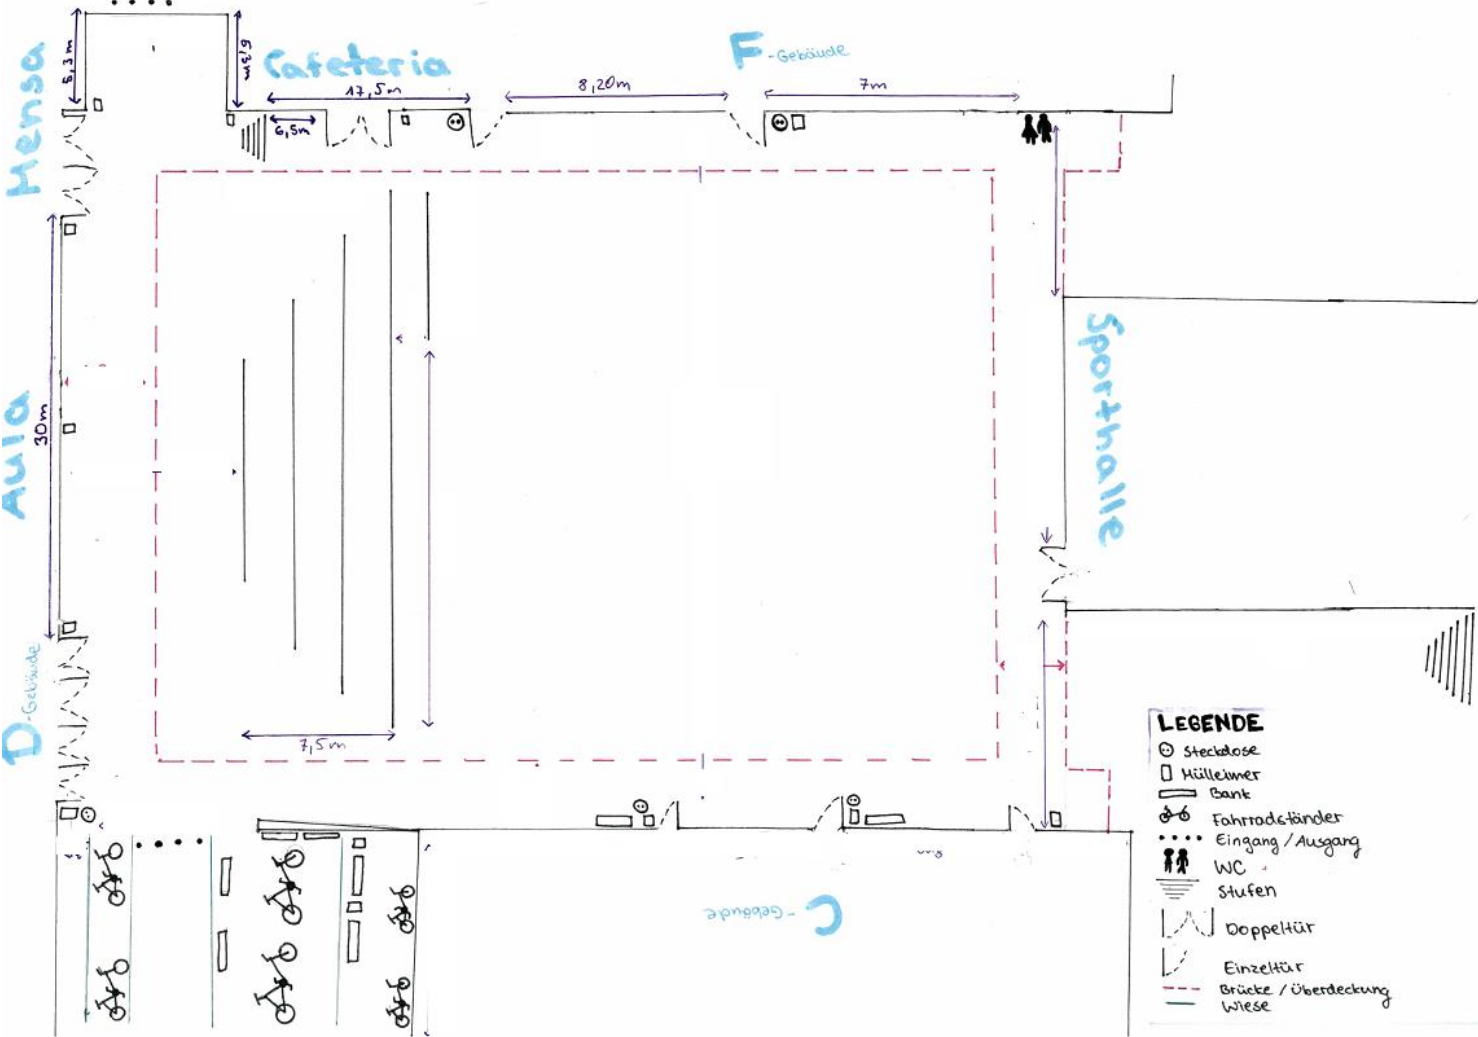 6,3m
6,3m
Mensa
Cafeteria
F-Gebäude
17,5m
8,20m
7m
6,5m
Aula
30m
Sporthalle
D-Gebäude
7,5m
C-Gebäude
LEGENDE
Steckdose
Mülleimer
Bank
Fahrradständer
Eingang/Ausgang
WC
Stufen
Doppeltür
Einzeltür
Brücke/Überdeckung
Wiese